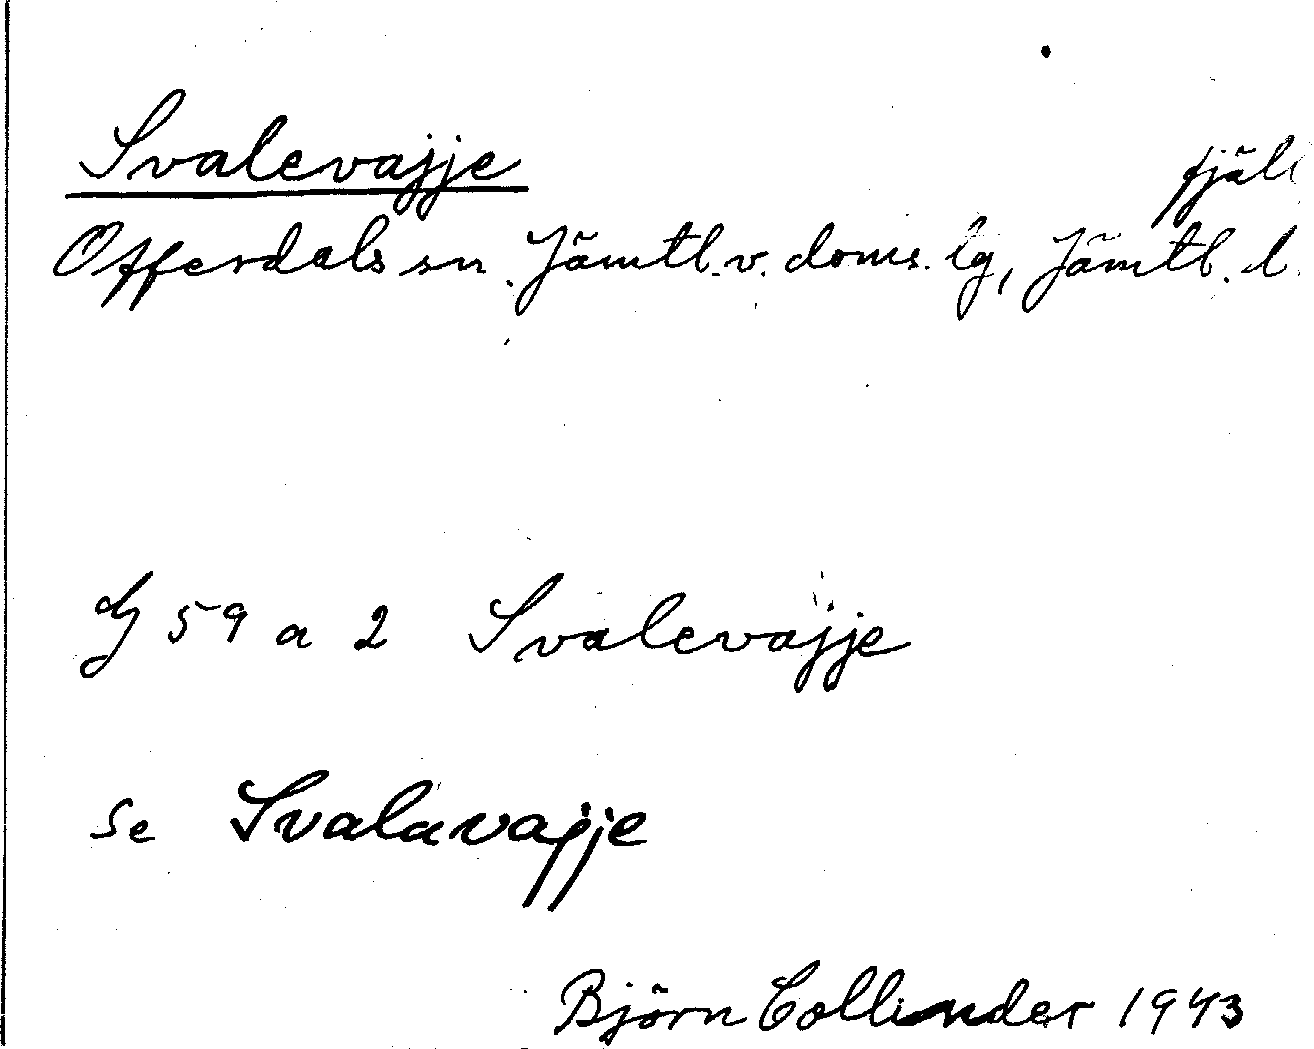 Svalevajje
fjäll
Offerdals sn. Jämtl. v. doms. lg, Jämtl. l.
G 59 a 2 Svalevajje
se Svalavajje
Björn Collinder 1943